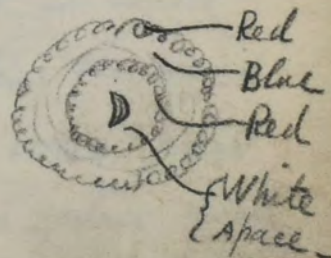 Red
Blue
Red
White
Space